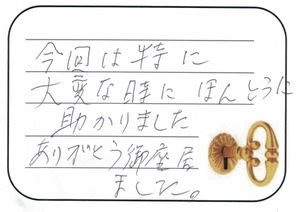 今回は特に
大変な時に ほんとうに
助かりました
ありがとう御座居
ました。